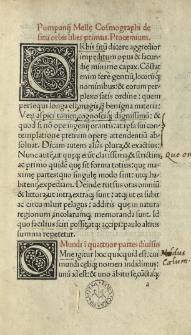 Pomponij Mellę Cosmographi de
situ orbis liber primus. Prooemium.
ORbis situ dicere aggredior
impeditum opus & facun-
dię minime capax. Cōstat
enim fere gentiū, locorūq;
nominibus & eorum per
plexo satis ordine: quem
persequi longa est, magis q̃ benigna materia:
Vex aspici tamen cognosciq; dignissimū: &
quod si nō ope ingenij orantis: at ipsa sui con
templatione precium operę attendentiū ab-
soluat. Dicam autem alias plura, & exactius:
Nunc autē, ut quęq; erūt clarissima & strictim,
ac primo quidē quę sit forma totius: quę ma-
ximę partes: quo singulę modo sint: utq; ha-
bitent, expediam. Deinde rursus oras omniū
& littora: ut intra, extraq; sunt: atq; ut ea subit
ac circumluit pelagus: additis quę in natura
regionum, incolarumq; memoranda sunt. Id
quo facilius sciri possit: atq; accipi: paulo altius
summa repetetur.
Mundi i quattuor partes diuisio
OMne igitur hoc quicquid est: cui
mundi cęliq; nomen indidimus:
unū id est: & uno ābitu se, cūctaq;
a
Mundus
Cœlum